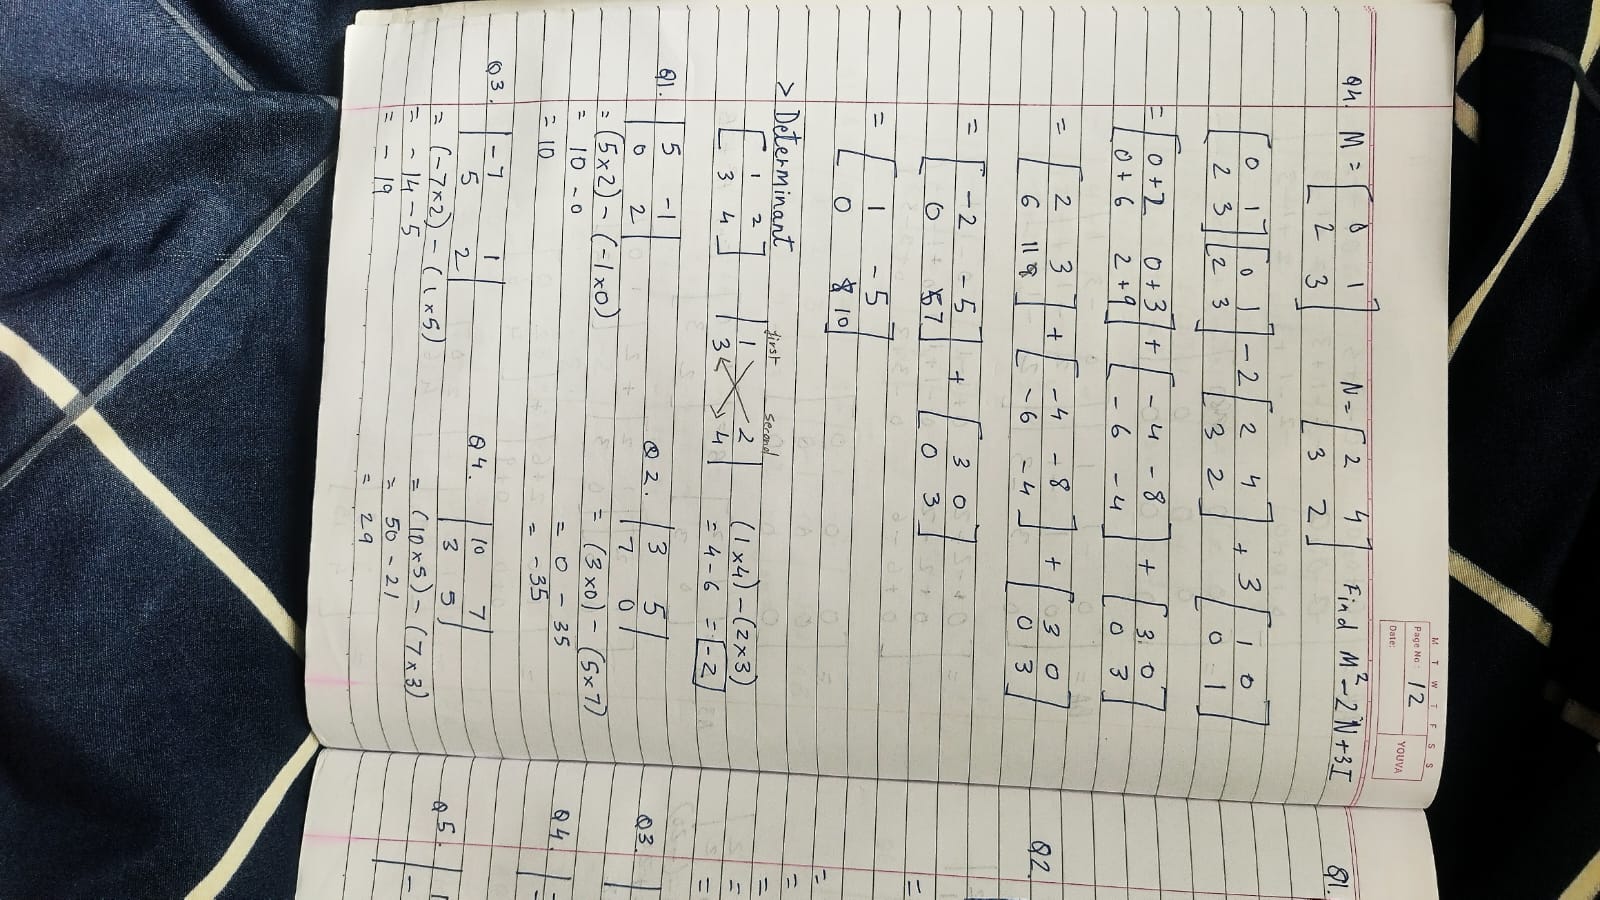 M T W T F S S
Page No: 12
YOUVA
Date:
Q4. M = [0 1
2 3] N = [2 4
3 2] Find M² - 2N + 3I
[0 1
2 3] [0 1
2 3] - 2 [2 4
3 2] + 3 [1 0
0 1]
= [0+2 0+3
0+6 2+9] + [-4 -8
-6 -4] + [3 0
0 3]
= [2 3
6 11] + [-4 -8
-6 -4] + [3 0
0 3]
= [-2 -5
0 7] + [3 0
0 3]
= [1 -5
0 10]
> Determinant
[1 2
3 4] first second
|1 2
3 4| (1x4) - (2x3)
= 4 - 6 = -2
Q1. |5 -1
0 2|
= (5x2) - (-1x0)
= 10 - 0
= 10
Q2. |3 5
7 0|
= (3x0) - (5x7)
= 0 - 35
= -35
Q3. |-7 1
5 2|
= (-7x2) - (1x5)
= -14 - 5
= -19
Q4. |10 7
3 5|
= (10x5) - (7x3)
= 50 - 21
= 29
Q1.
Q2.
=
=
=
=
=
=
Q3.
Q4.
Q5.